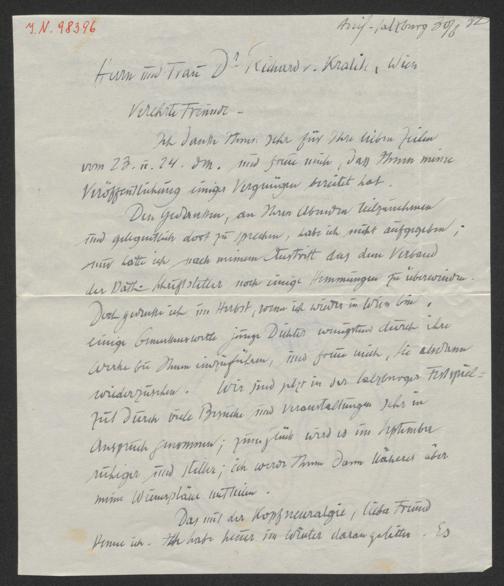 J.N. 98396
Anif-Salzburg 30/8 32
Herrn und Frau Dr Richard v. Kralik, Wien
Verehrte Freunde –
Ich danke Ihnen sehr für Ihre lieben Zeilen
vom 23. u. 24. dm. und freue mich, daß Ihnen meine
Veröffentlichung einiges Vergnügen bereitet hat.
Den Gedanken, an Ihren Abenden teilzunehmen
und gelegentlich dort zu sprechen, habe ich nicht aufgegeben;
nur hatte ich nach meinem Austritt aus dem Verband
der Kath. Schriftsteller noch einige Hemmungen zu überwinden.
Doch gedenke ich im Herbst, wenn ich wieder in Wien bin,
einige bemerkenswerte junge Dichter wenigstens durch ihre
Werke bei Ihnen einzuführen, und freue mich, Sie alsdann
wiederzusehen. Wir sind jetzt in der Salzburger Festspiel=
zeit durch viele Besuche und Veranstaltungen sehr in
Anspruch genommen; zum Glück wird es im September
ruhiger und stiller; ich werde Ihnen dann Näheres über
meine Wienerpläne mitteilen.
Das mit der Kopfneuralgie, lieber Freund
kenne ich. Ich habe heuer im Winter daran gelitten. Es